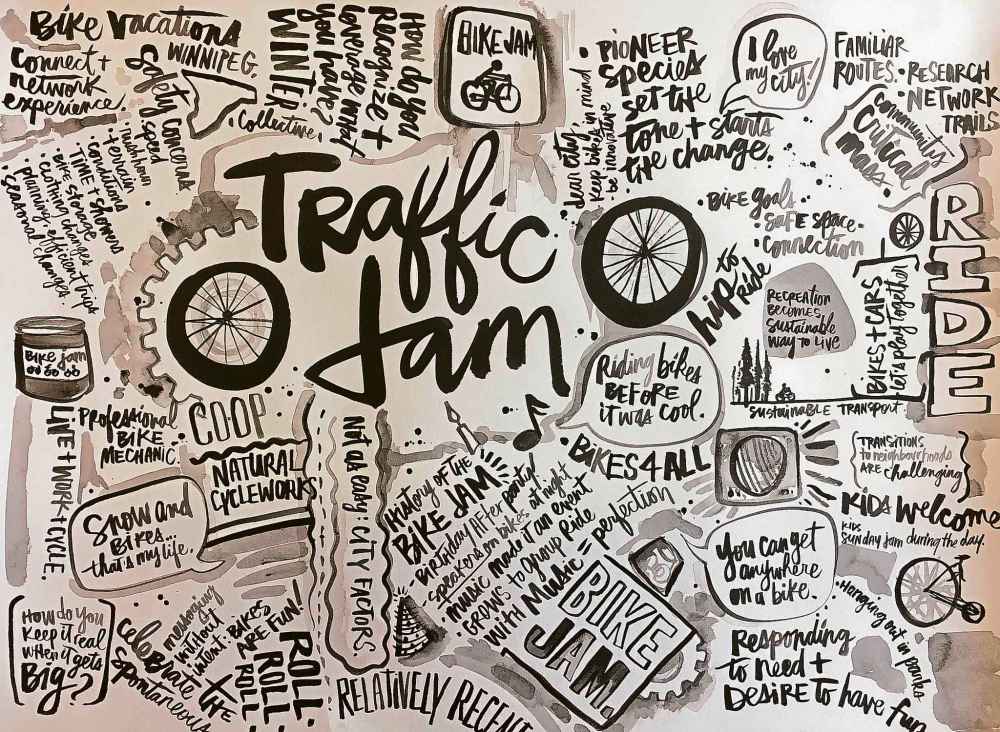 Bike Vacations
WINNIPEG.
connect +
network
experience.
Safety concerns
speed
+ terrain
conditions
TIME + showers
Bike storage
clothing changes
planning efficient trips
seasonal changes.
Collective.
WINTER
How do you
Recognize +
leverage what
you have?
BIKE JAM
dear city
keep bikes in mind
be innovative
PIONEER
species
set the
tone + starts
the change.
I love
my city!
FAMILIAR
ROUTES.
RESEARCH
NETWORK
TRAILS
community
critical
mass
RIDE
Traffic
Jam
BIKE goals
safe space
connection
hip to
ride
RECREATION
BECOMES
sustainable
way to live
BIKES + CARS
let's play together
sustainable transport.
Bike jam
Professional
BIKE
MECHANIC.
COOP
NATURAL
CYCLEWORKS
LIVE + WORK + CYCLE.
Snow and
Bikes...
that's my life.
Not as easy: CITY FACTORS
HISTORY OF THE
BIKE JAM
BIRTHDAY After party
speakers on bikes at night
music made it an event
GROWS to group Ride
with Music = perfection
Riding bikes
BEFORE
it was cool.
BIKES 4 ALL
TRANSITIONS
to neighbourhoods
ARE challenging
KIDS Welcome
KIDS
SUNDAY jam during the day.
You can get
anywhere
on a bike.
Hanging out in parks
BIKE
JAM.
Responding
to need +
DESIRE to have fun
HOW do you
keep it real
when it gets
Big?
celeBrate the
spontaneous
messaging
without
intent:
BIKES
ARE FUN!
ROLL.
ROLL
ROLL
RELATIVELY RECENT